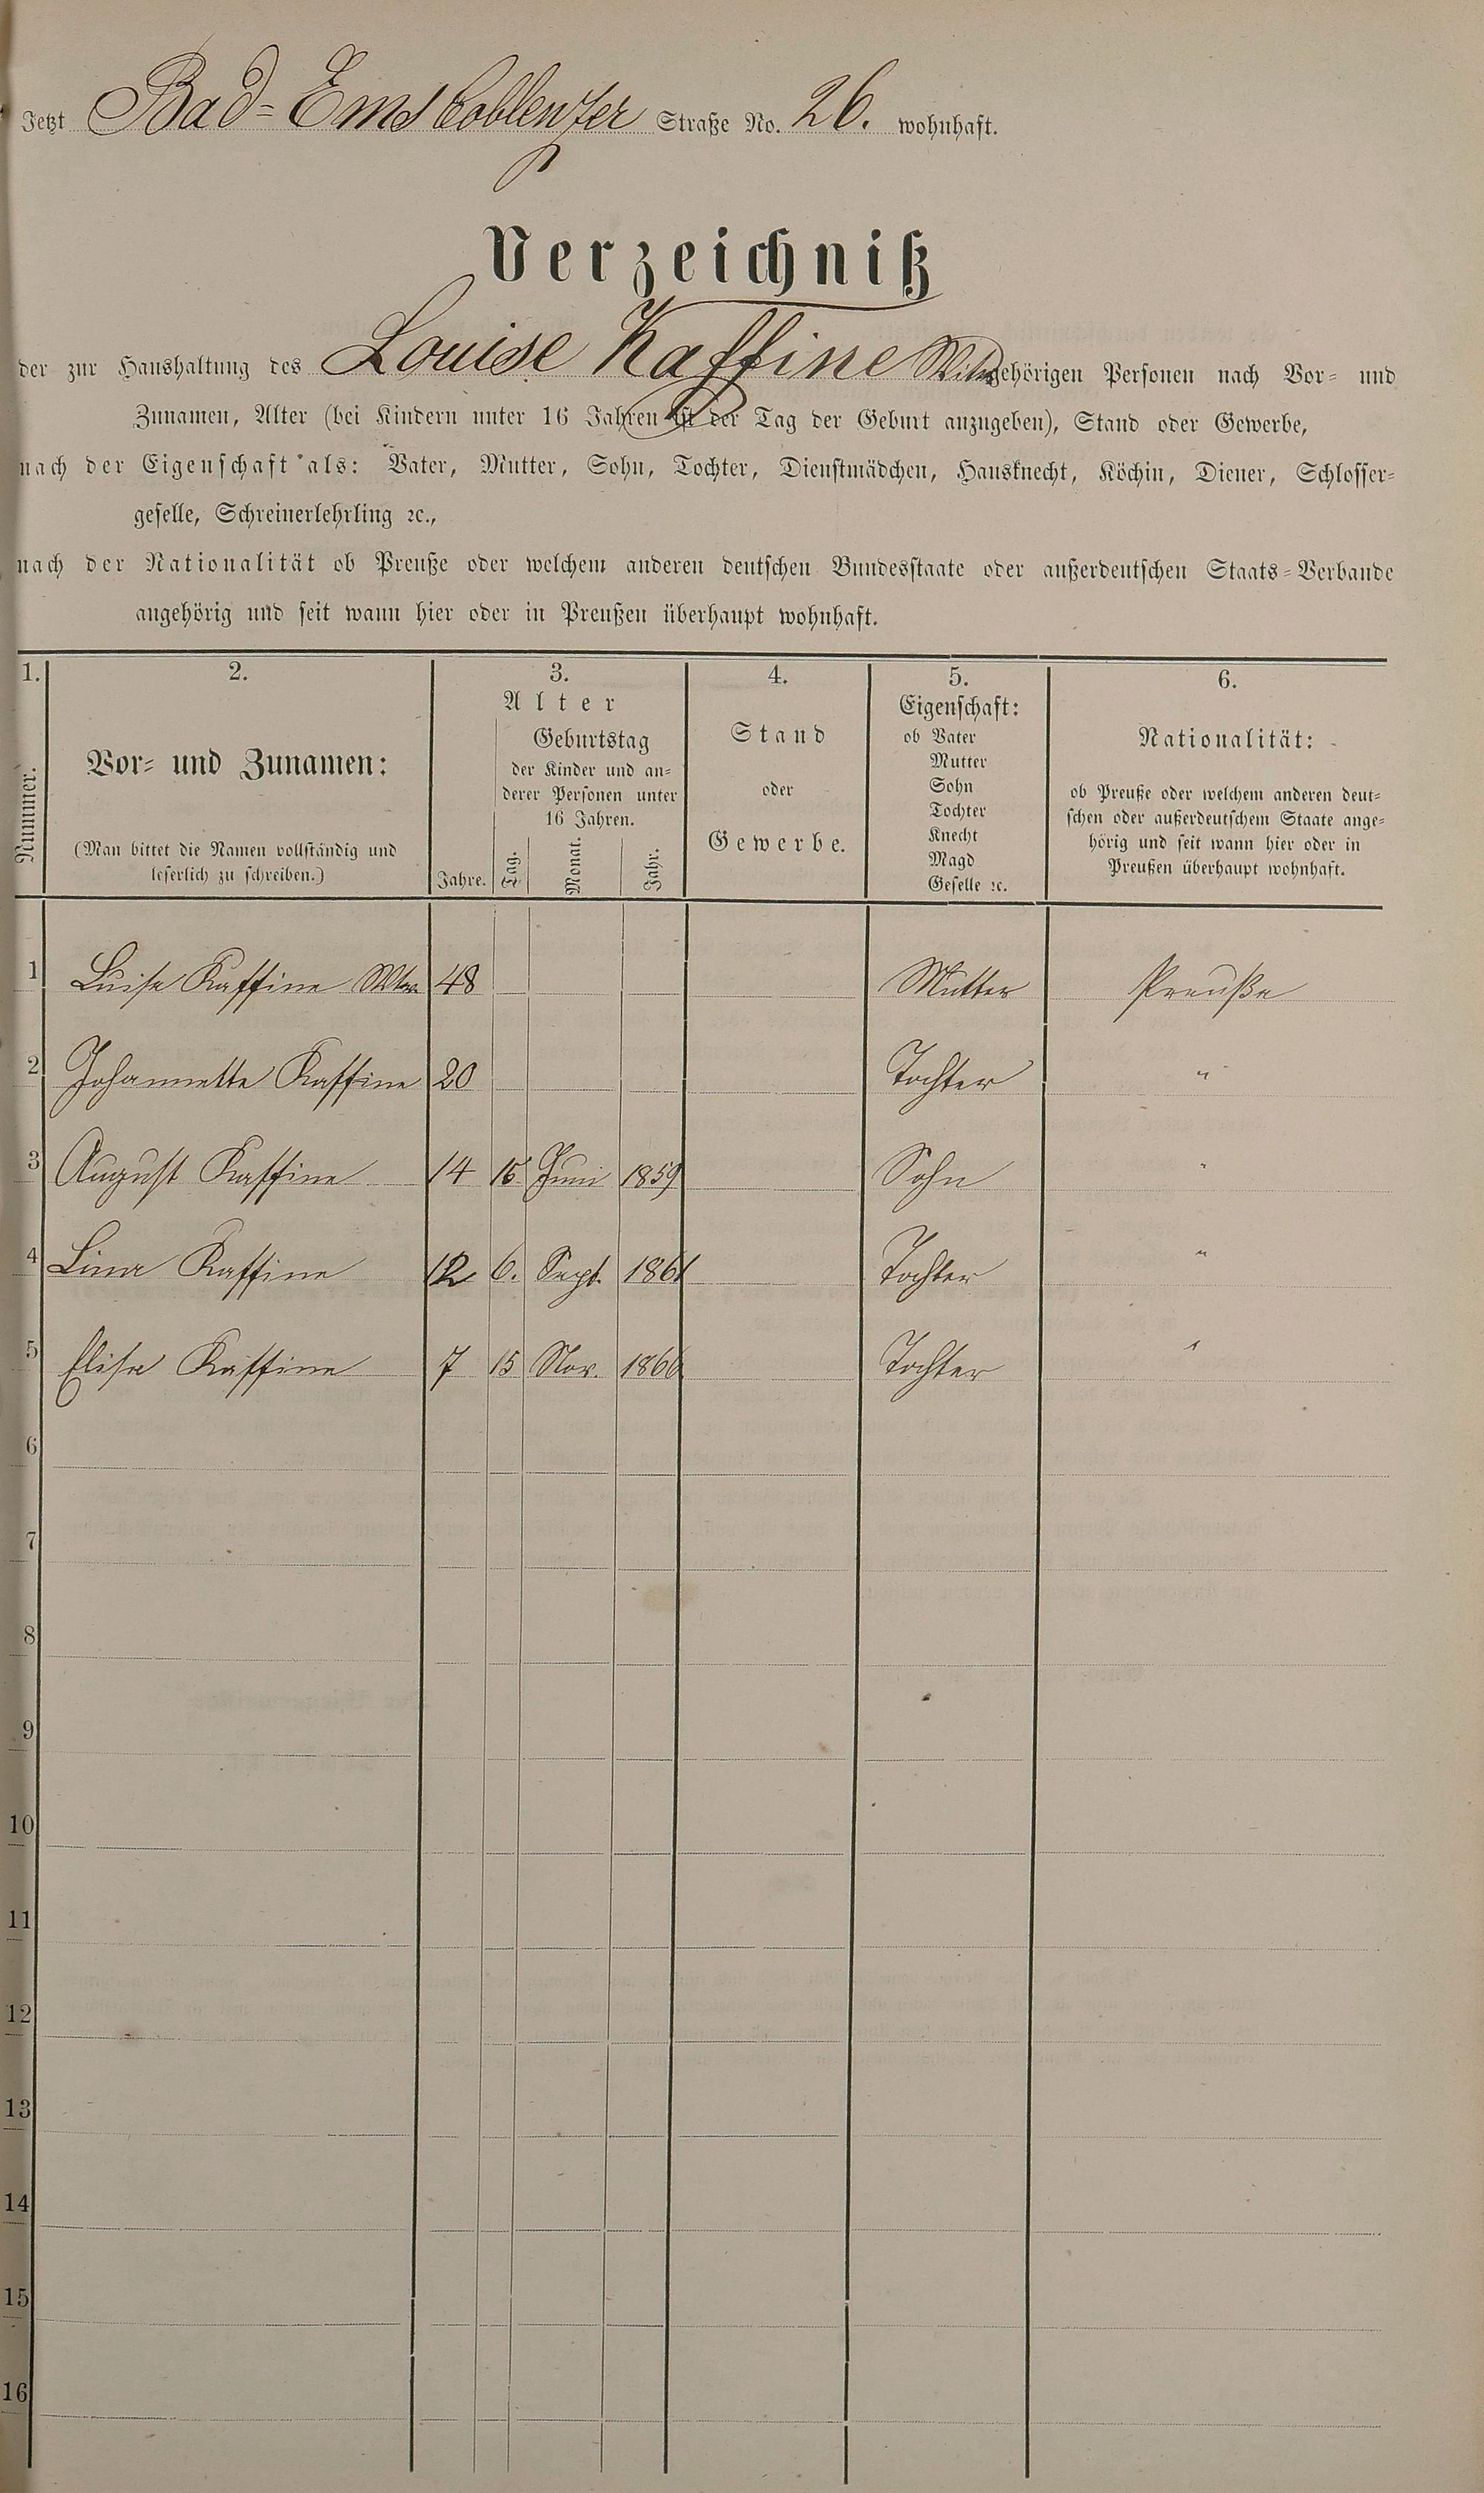 Jetzt Bad-Ems Coblenzer Straße No. 26. wohnhaft.
Verzeichniß
der zur Haushaltung des Louise Kaffine Witwe gehörigen Personen nach Vor- und
Zunamen, Alter (bei Kindern unter 16 Jahren ist der Tag der Geburt anzugeben), Stand oder Gewerbe,
nach der Eigenschaft als: Vater, Mutter, Sohn, Tochter, Dienstmädchen, Hausknecht, Köchin, Diener, Schlosser-
geselle, Schreinerlehrling ꝛc.,
nach der Nationalität ob Preuße oder welchem anderen deutschen Bundesstaate oder außerdeutschen Staats-Verbande
angehörig und seit wann hier oder in Preußen überhaupt wohnhaft.
1. 2. 3. 4. 5. 6.
Nummer.
Vor- und Zunamen:
(Man bittet die Namen vollständig und
leserlich zu schreiben.)
Alter
Jahre.
Geburtstag
der Kinder und an-
derer Personen unter
16 Jahren.
Tag. Monat. Jahr.
Stand
oder
Gewerbe.
Eigenschaft:
ob Vater
Mutter
Sohn
Tochter
Knecht
Magd
Geselle ꝛc.
Nationalität:
ob Preuße oder welchem anderen deut-
schen oder außerdeutschem Staate ange-
hörig und seit wann hier oder in
Preußen überhaupt wohnhaft.
1 Luise Kaffine Wtw. 48 Mutter Preuße
2 Johannette Kaffine 20 Tochter "
3 August Kaffine 14 15 Juni 1859 Sohn "
4 Lina Kaffine 12 6. Sept. 1861 Tochter "
5 Elise Kaffine 7 15 Nov. 1866 Tochter "
6
7
8
9
10
11
12
13
14
15
16